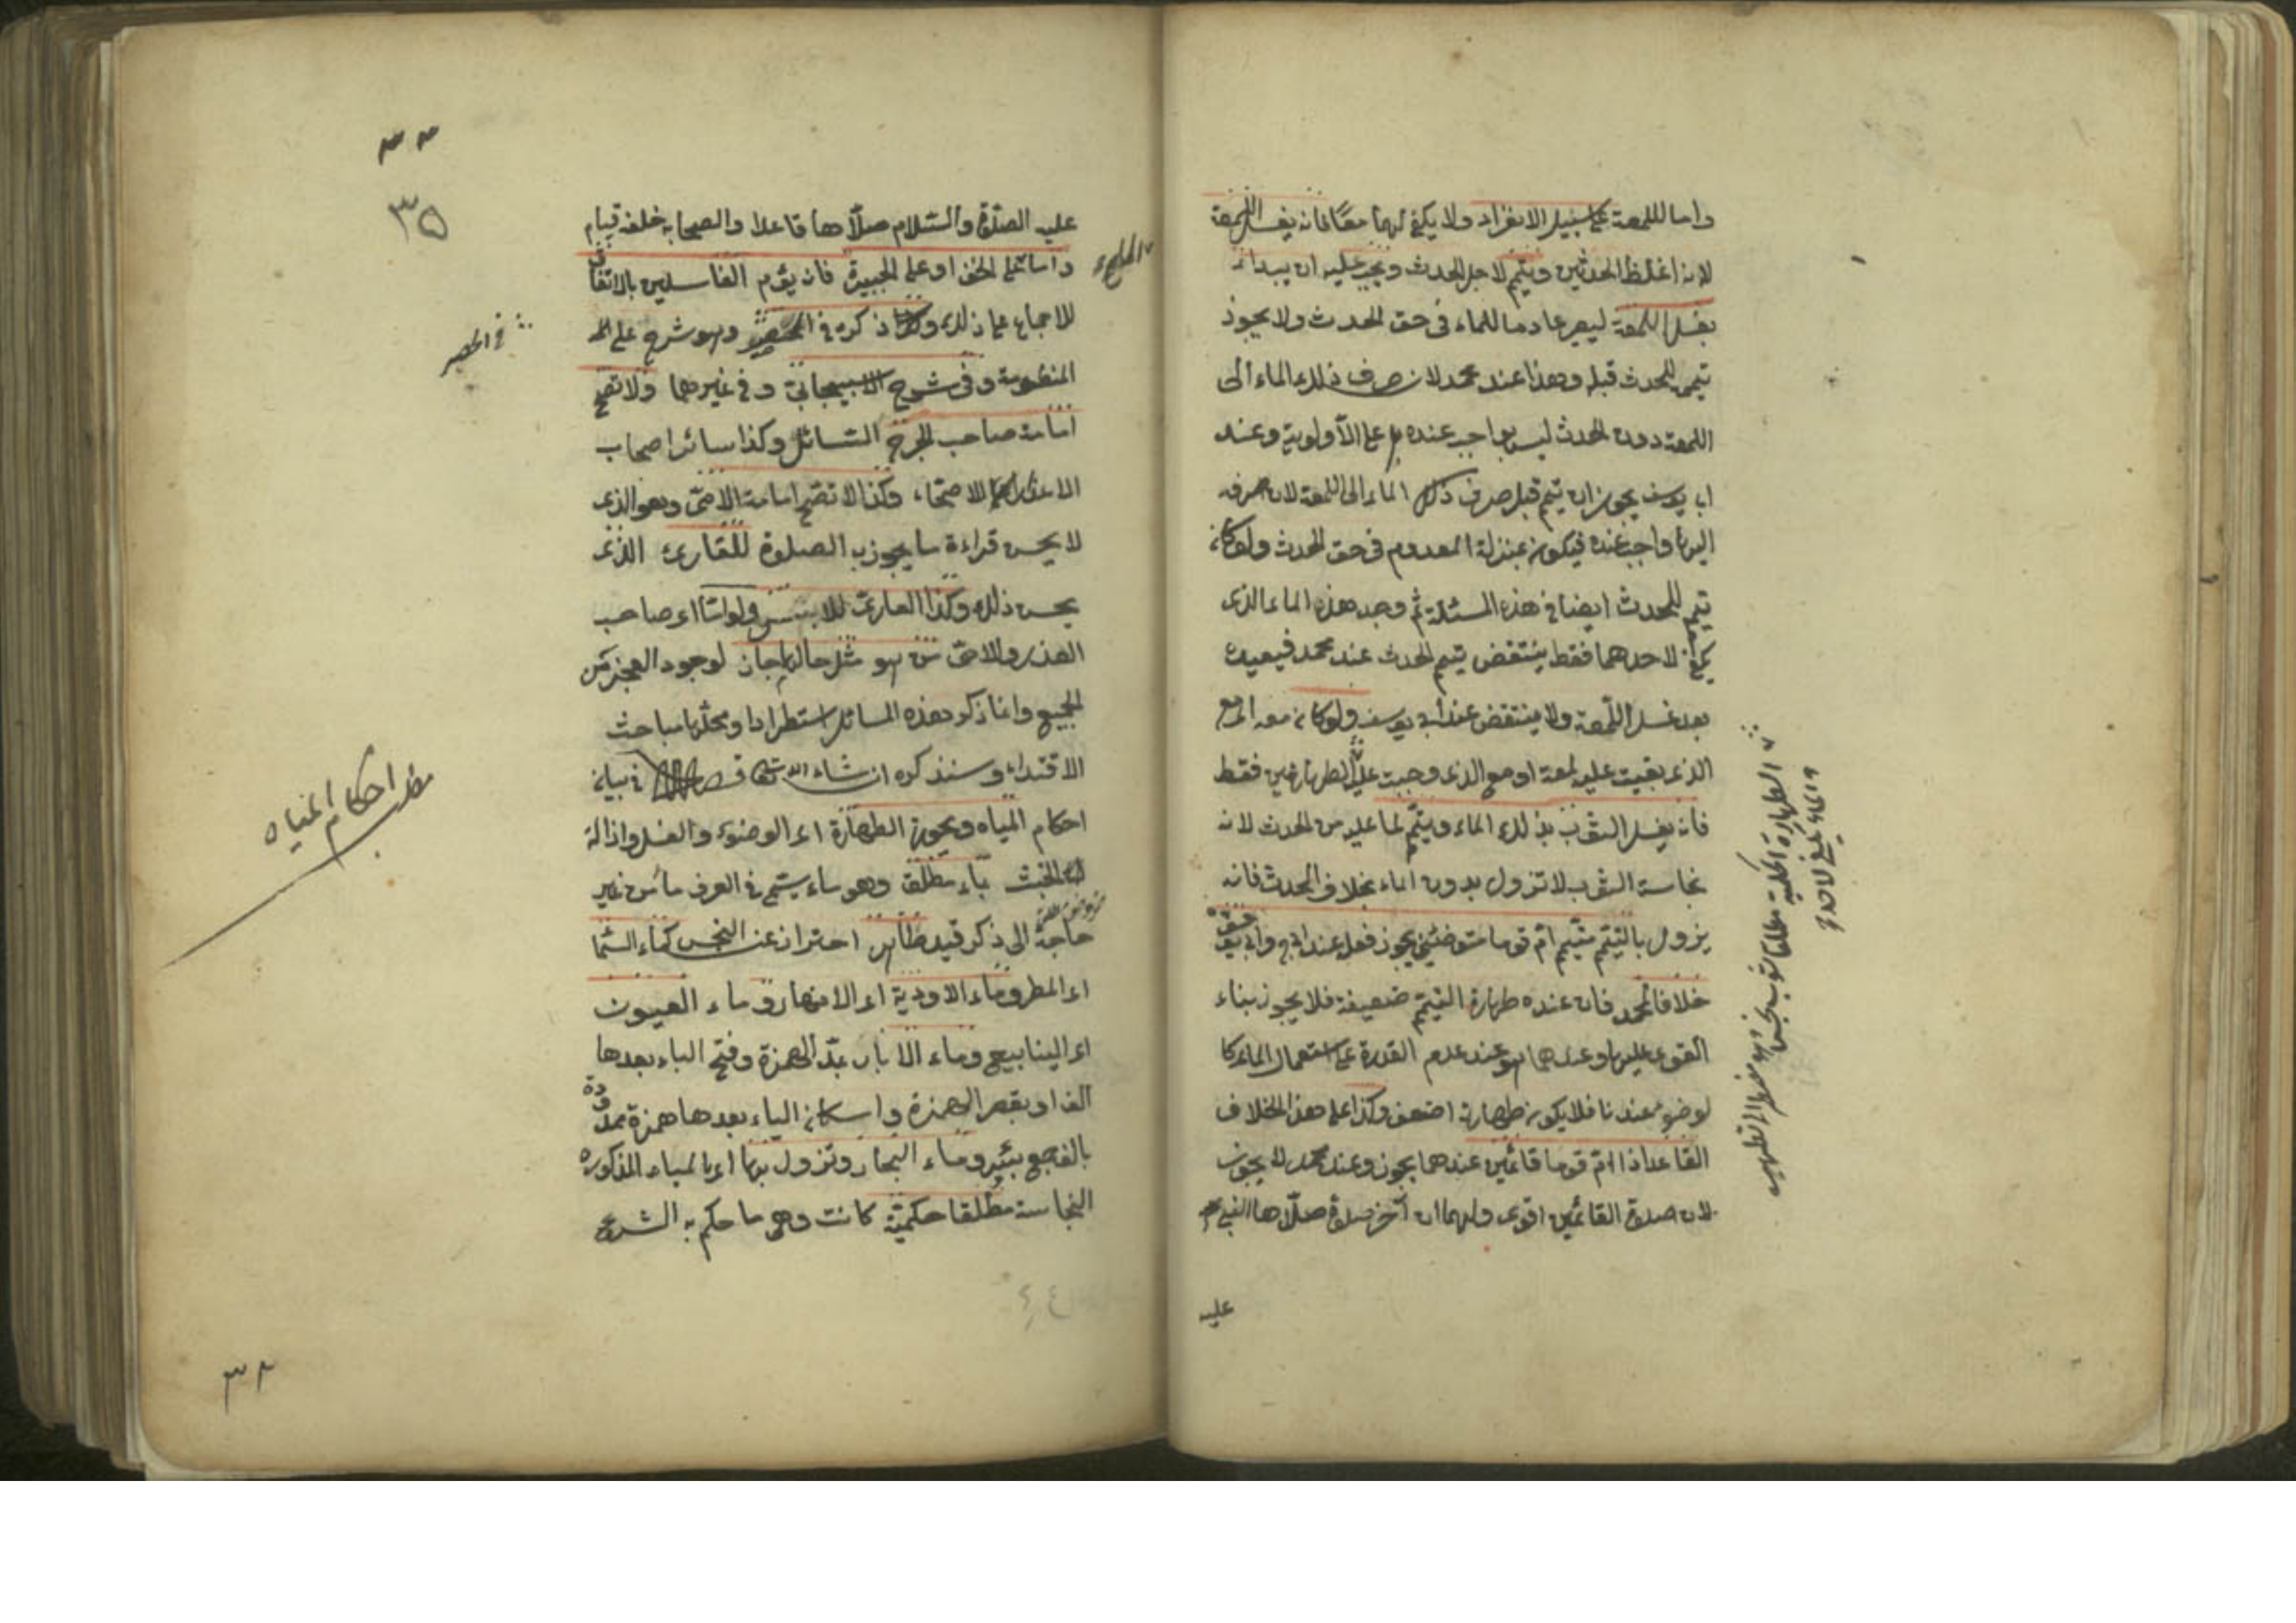 واما للمعة على سبيل الانفراد ولا يكفي لهما معًا فانه يغسل اللمعة
لانه اغلظ الحدثين ويتيمم لاجل الحدث ويجب عليه ان يبدأ
بغسل اللمعة ليصير عادما للماء في حق الحدث ولا يجوز
تيممه للحدث قبله وهذا عند محمد لان صرف ذلك الماء الى
اللمعة دون الحدث ليس بواجب عنده بل على الأولوية وعند
ابي يوسف يجوز ان يتيمم قبل صرف ذلك الماء الى اللمعة لان صرفه
اليها واجب عنده فيكون بمنزلة المعدوم في حق الحدث ولو كان
تيمم للحدث ايضا في هذه المسئلة ثم وجد هذا الماء الذي
يكفي لاحدهما فقط ينتقض تيمم الحدث عند محمد فيعيده
بعد غسل اللمعة ولا ينتقض عند ابي يوسف ولو كان معه اي مع
الذي بقيت عليه لمعة او مع الذي وجبت عليه الطهارة فقط
فانه يغسل الثوب بذلك الماء ويتيمم لما عليه من الحدث لانه
نجاسة الثوب لا تزول بدون الماء بخلاف الحدث فانه
يزول بالتيمم متيمم ام قوما متوضئين يجوز فعله عند ابي ح وابي يوسف
خلافا لمحمد فان عنده طهارة التيمم ضعيفة فلا يجوز بناء
القوي عليها وعندهما هو عند عدم القدرة على استعمال الماء كا
لوضوء عندنا فلا يكون طهارته اضعف وكذا على هذا الخلاف
القاعد اذا ام قوما قائمين عندهما يجوز وعند محمد لا يجوز
لان صلوة القائمين اقوى ولهما ان آخر صلوة صلّاها النبي
عليه
الطهارة الحكمية مطلقا ثوب نجس وهو مضطر الى التطهير
والماء يكفي لاحدهما
٣٥
عليه الصلوة والسّلام صلّاها قاعدا والصحابة خلفه قيام
واما على الخف او على الجبيرة فانه يؤم الغاسلين بالاتفاق
للاجماع على ذلك وكذا ذكره في وهو شرح على
المنظومة وفي شرح الاسبيجابي وفي غيرهما ولا تصح
امامة صاحب الجرح السائل وكذا سائر اصحاب
الاعذار للاصحاء وكذا لا تصح امامة الامّي وهو الذي
لا يحسن قراءة ما يجوز به الصلوة للقارئ الذي
يحسن ذلك وكذا العاري للابس ولو امّا اي صاحب
العذر والامي من هو مثل حالهما جاز لوجود العجز من
الجميع وانما ذكر هذه المسائل استطرادا ومحلّها مباحث
الاقتداء وسنذكره ان شاء الله تعا فصل في بيان
احكام المياه ويجوز الطهارة اي الوضوء والغسل وازالة
الخبث بماء مطلق وهو ماء يستمى في العرف ماء من غير
حاجة الى ذكر قيد طاهر احترازعن النجس كماء السما
اي المطر وماء الاودية اي الانهار وماء العيون
اي الينابيع وماء الآبار بمدّ الهمزة وفتح الباء بعدها
الف او بقصر الهمزة واسكان الباء بعدها همزة ممدودة
بالف جمع بئر وماء البحار وتزول بها اي بالمياه المذكورة
النجاسة مطلقا حكميّة كانت وهي ما حكم به الشرع
مطلب احكام المياه